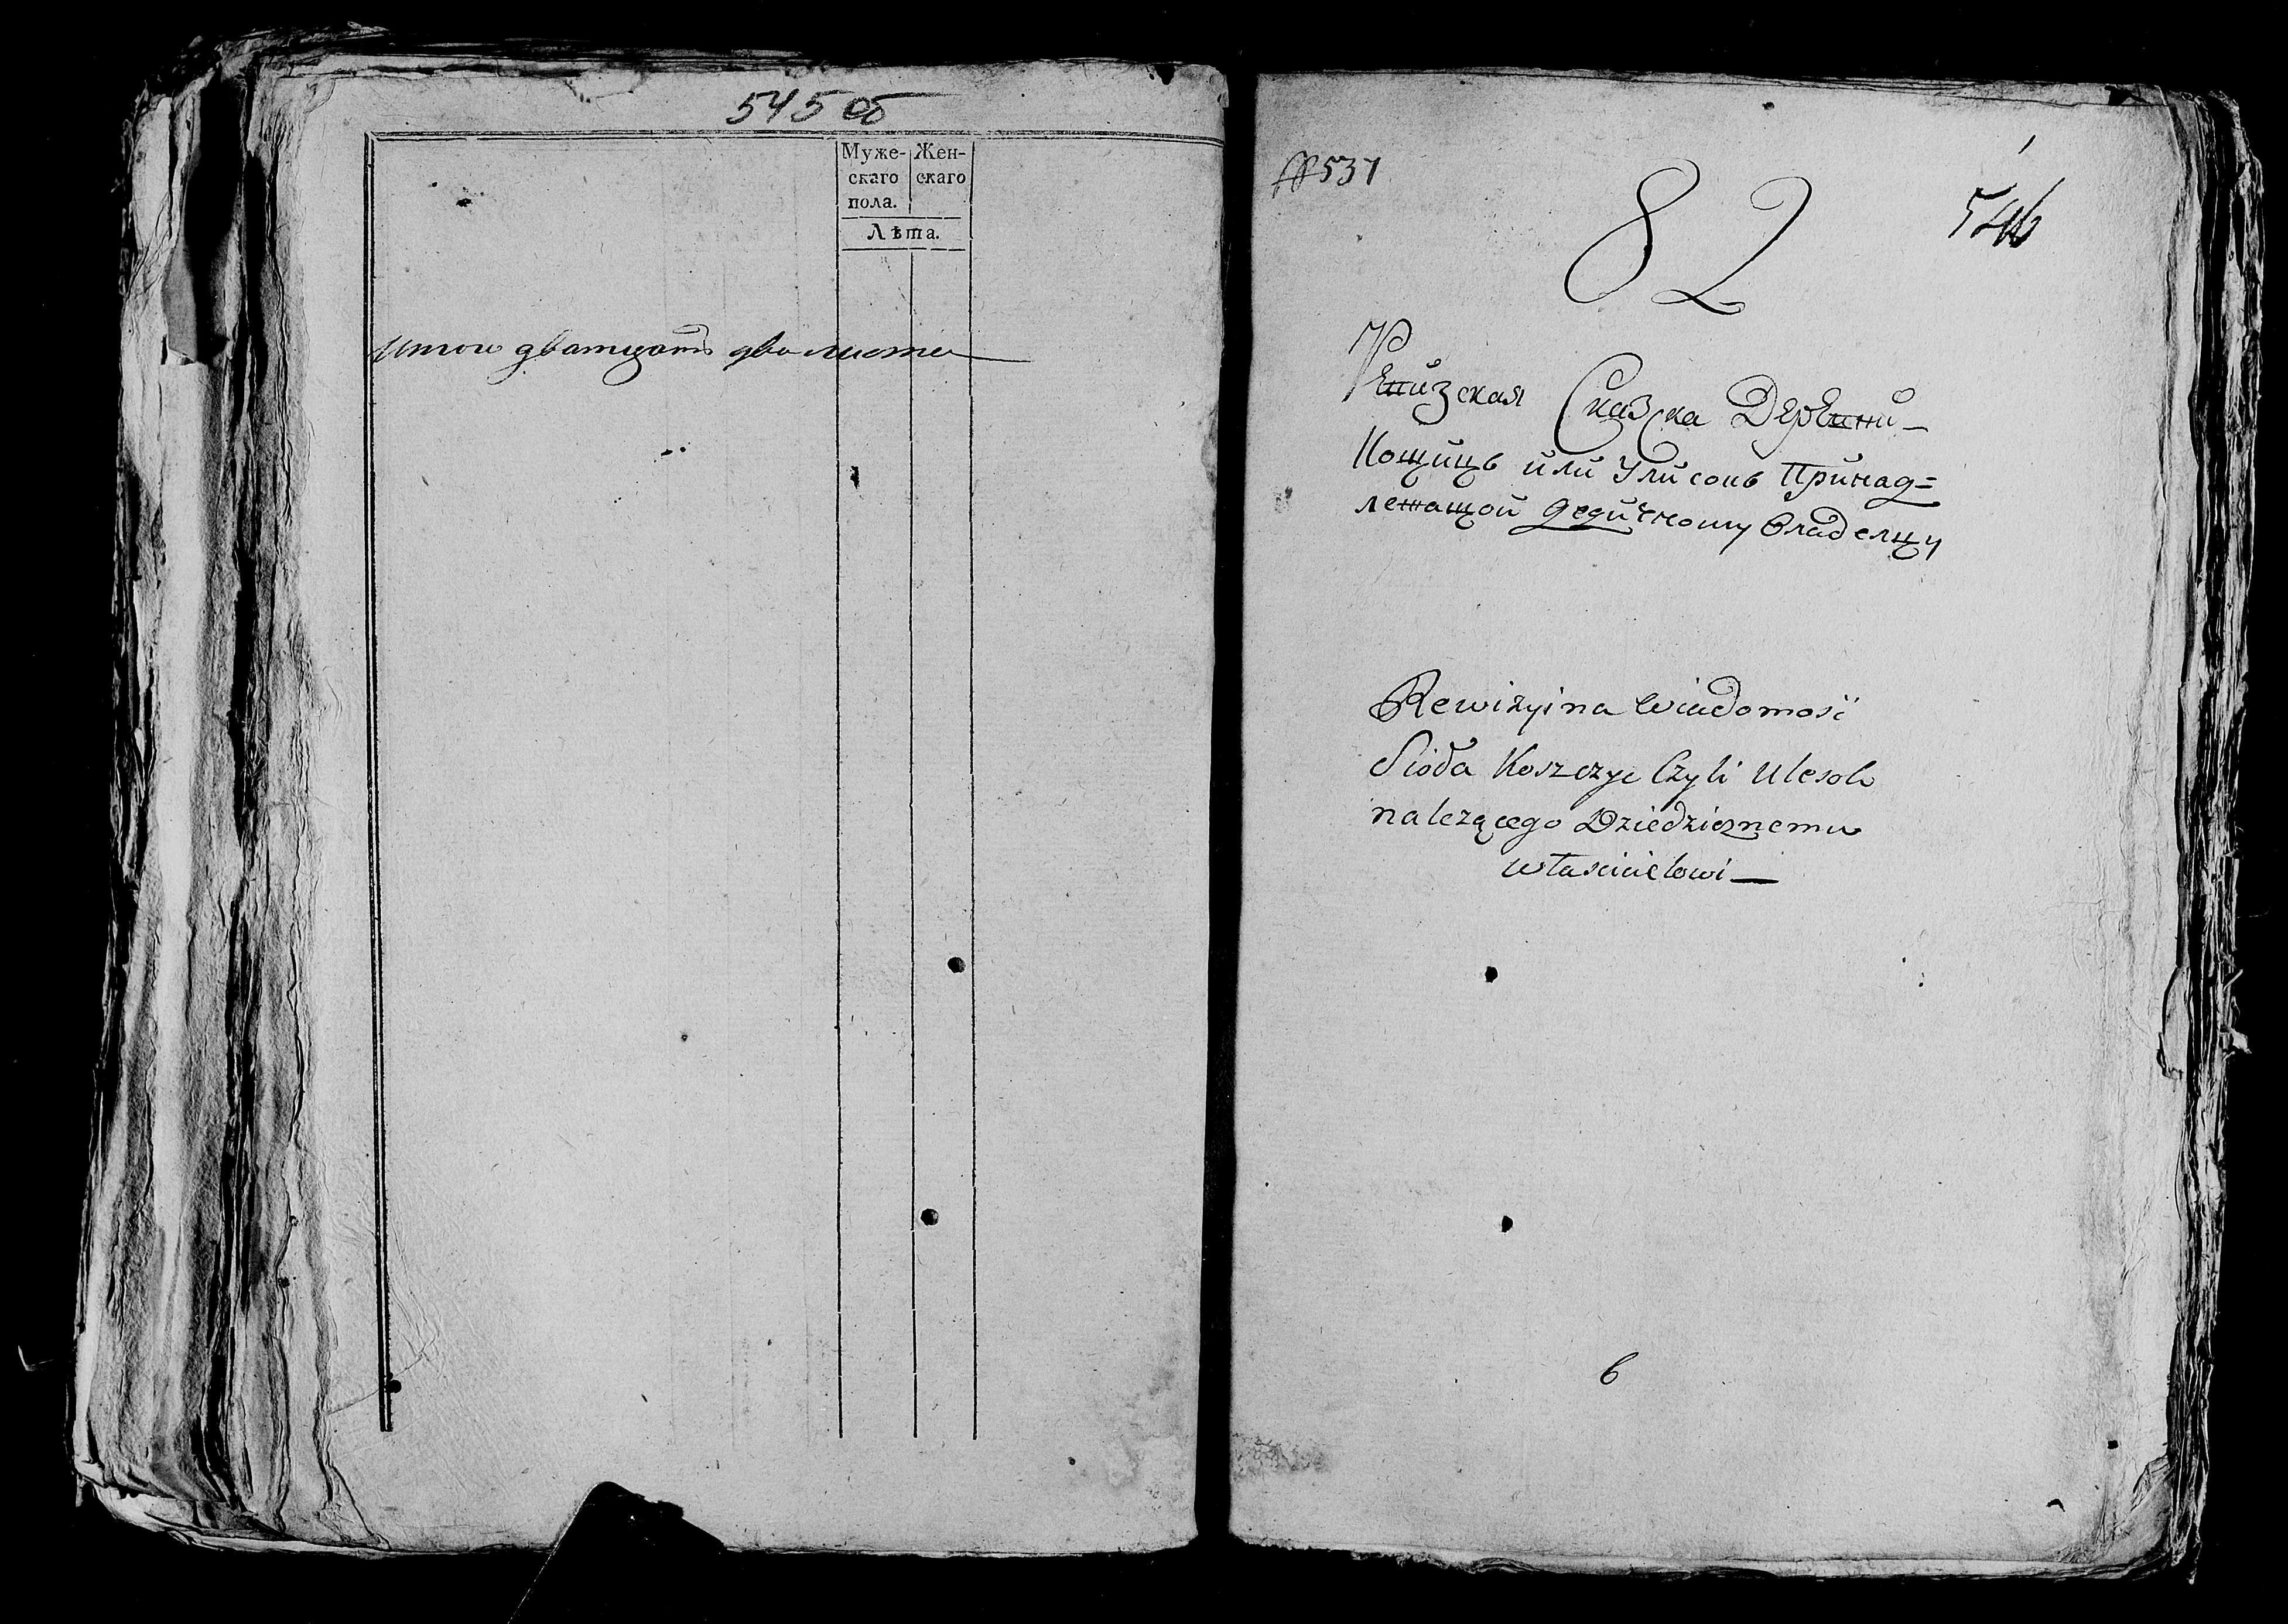 545 об
Муже- Жен-
скаго скаго
пола.
Лѣта.
Итого дватцать два листа
537
82
546
Ревизская Сказска Деревни
Кощицъ или Улисокъ Принад=
лежащой Дедичному Владелцу
Rewizyina Wiadomość
Sioła Koszczyc Czyli Ulesok
należącego Dziedzicznemu
właścicielowi
6